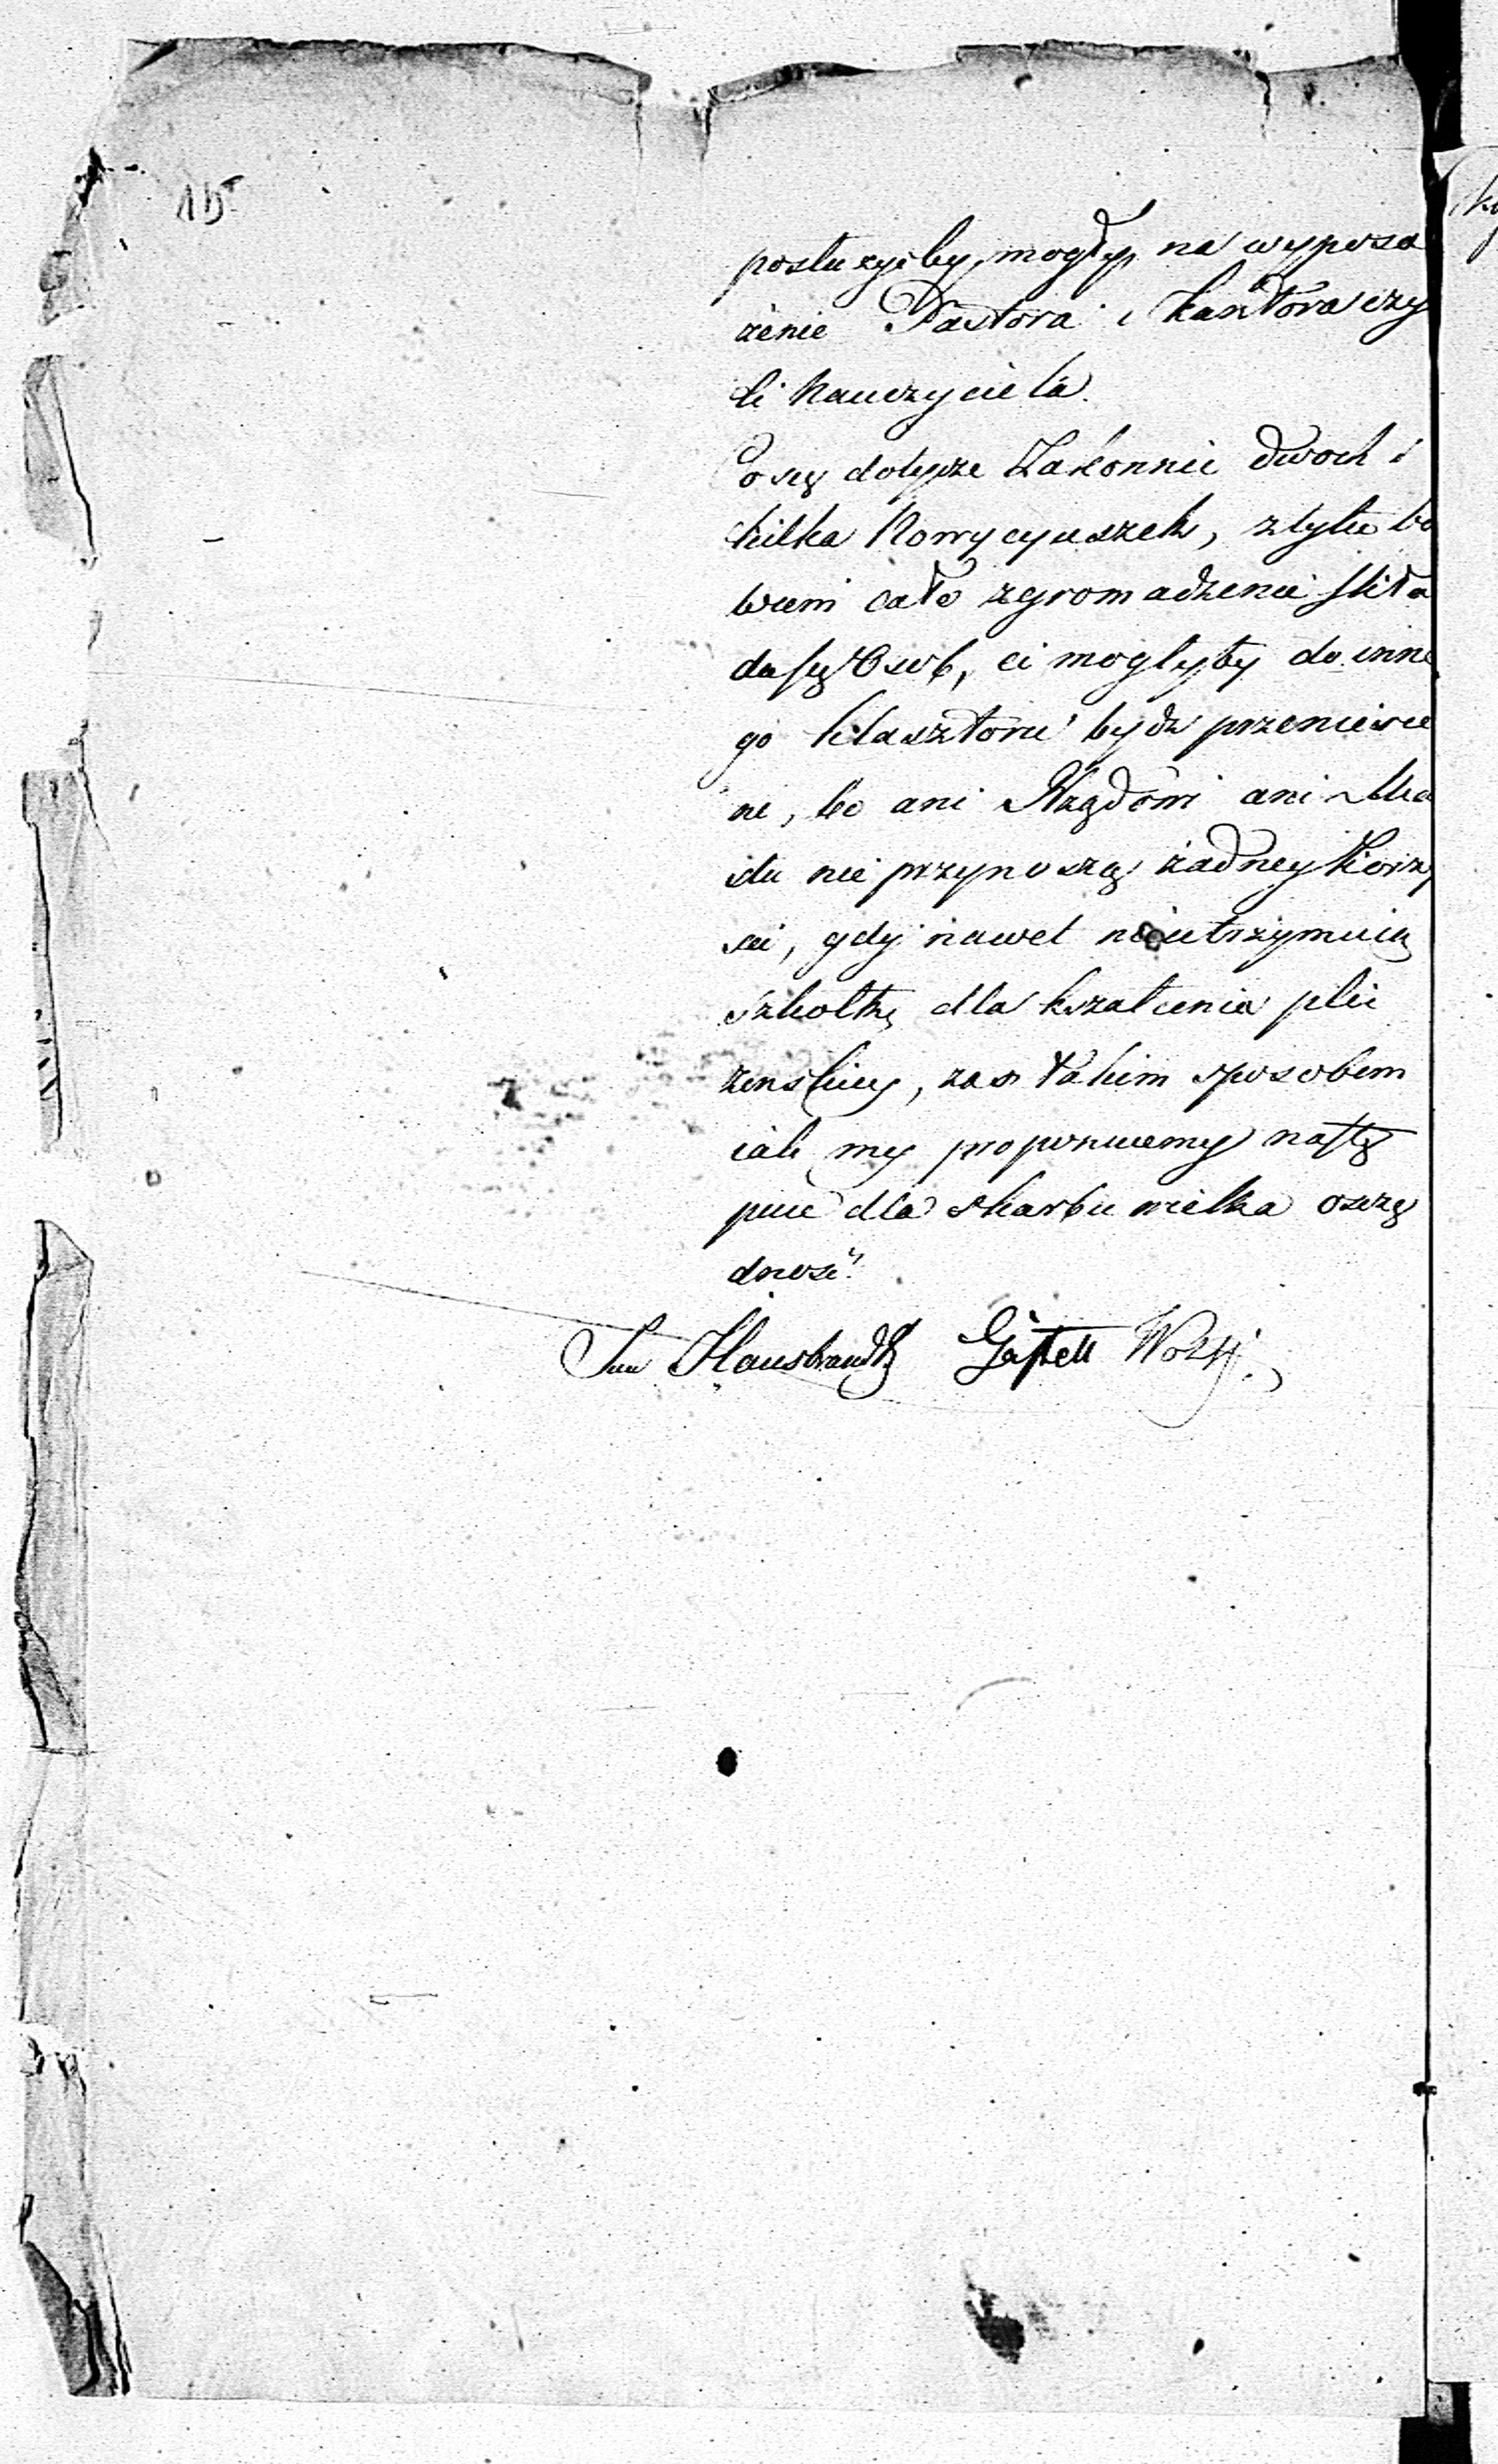 15
posłużyćby mogły na wyposa
żenie Pastora i kantora czy
li Nauczyciela.
Co się dotycze Zakonnic dwoch i
kilka Nowycyuszek, z tylu bo
wiem całe zgromadzenie skła
da się Osob, ci mogłyby do inne
go klasztoru bydź przeniesie
ne, bo ani Rządowi ani Mia
stu nie przynoszą żadney korzy
ści, gdy nawet nieutrzymuią
szkołkę dla kształcenia płci
żenskiey, zas takim sposobem
iak my proponuiemy nastę
puie dla skarbu wielka oszczę
dność.
Jan Hausbrandt